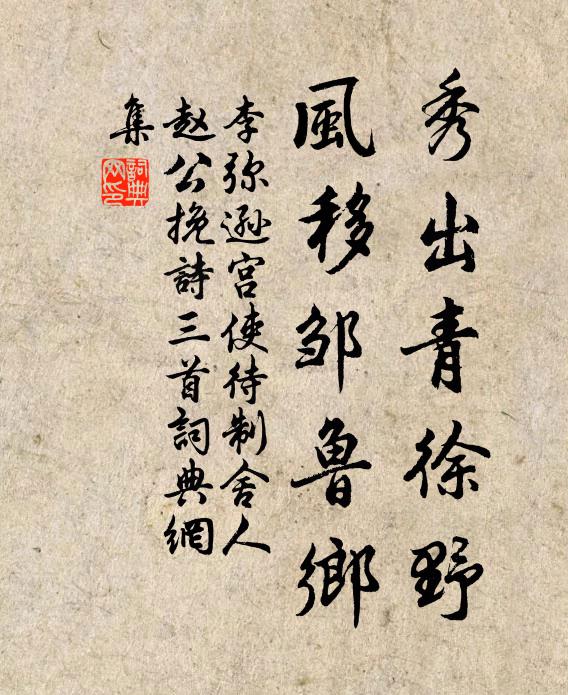 秀出青徐野
風移邹魯鄉
李弥遜宫使待制舍人
赵公挽詩三首詞典網
集
詞典網印